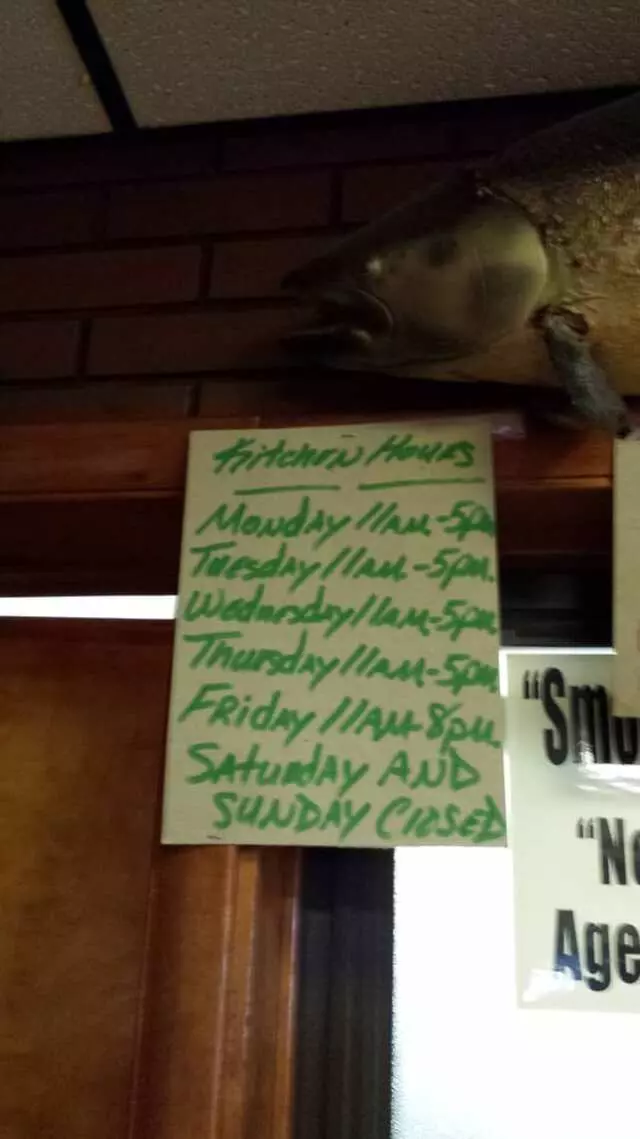 Kitchen Hours
Monday 11am-5pm
Tuesday 11am-5pm.
Wednesday 11am-5pm
Thursday 11am-5pm
Friday 11am-8pm
Saturday AND
SUNDAY ClosED
"Smo
"No
Age